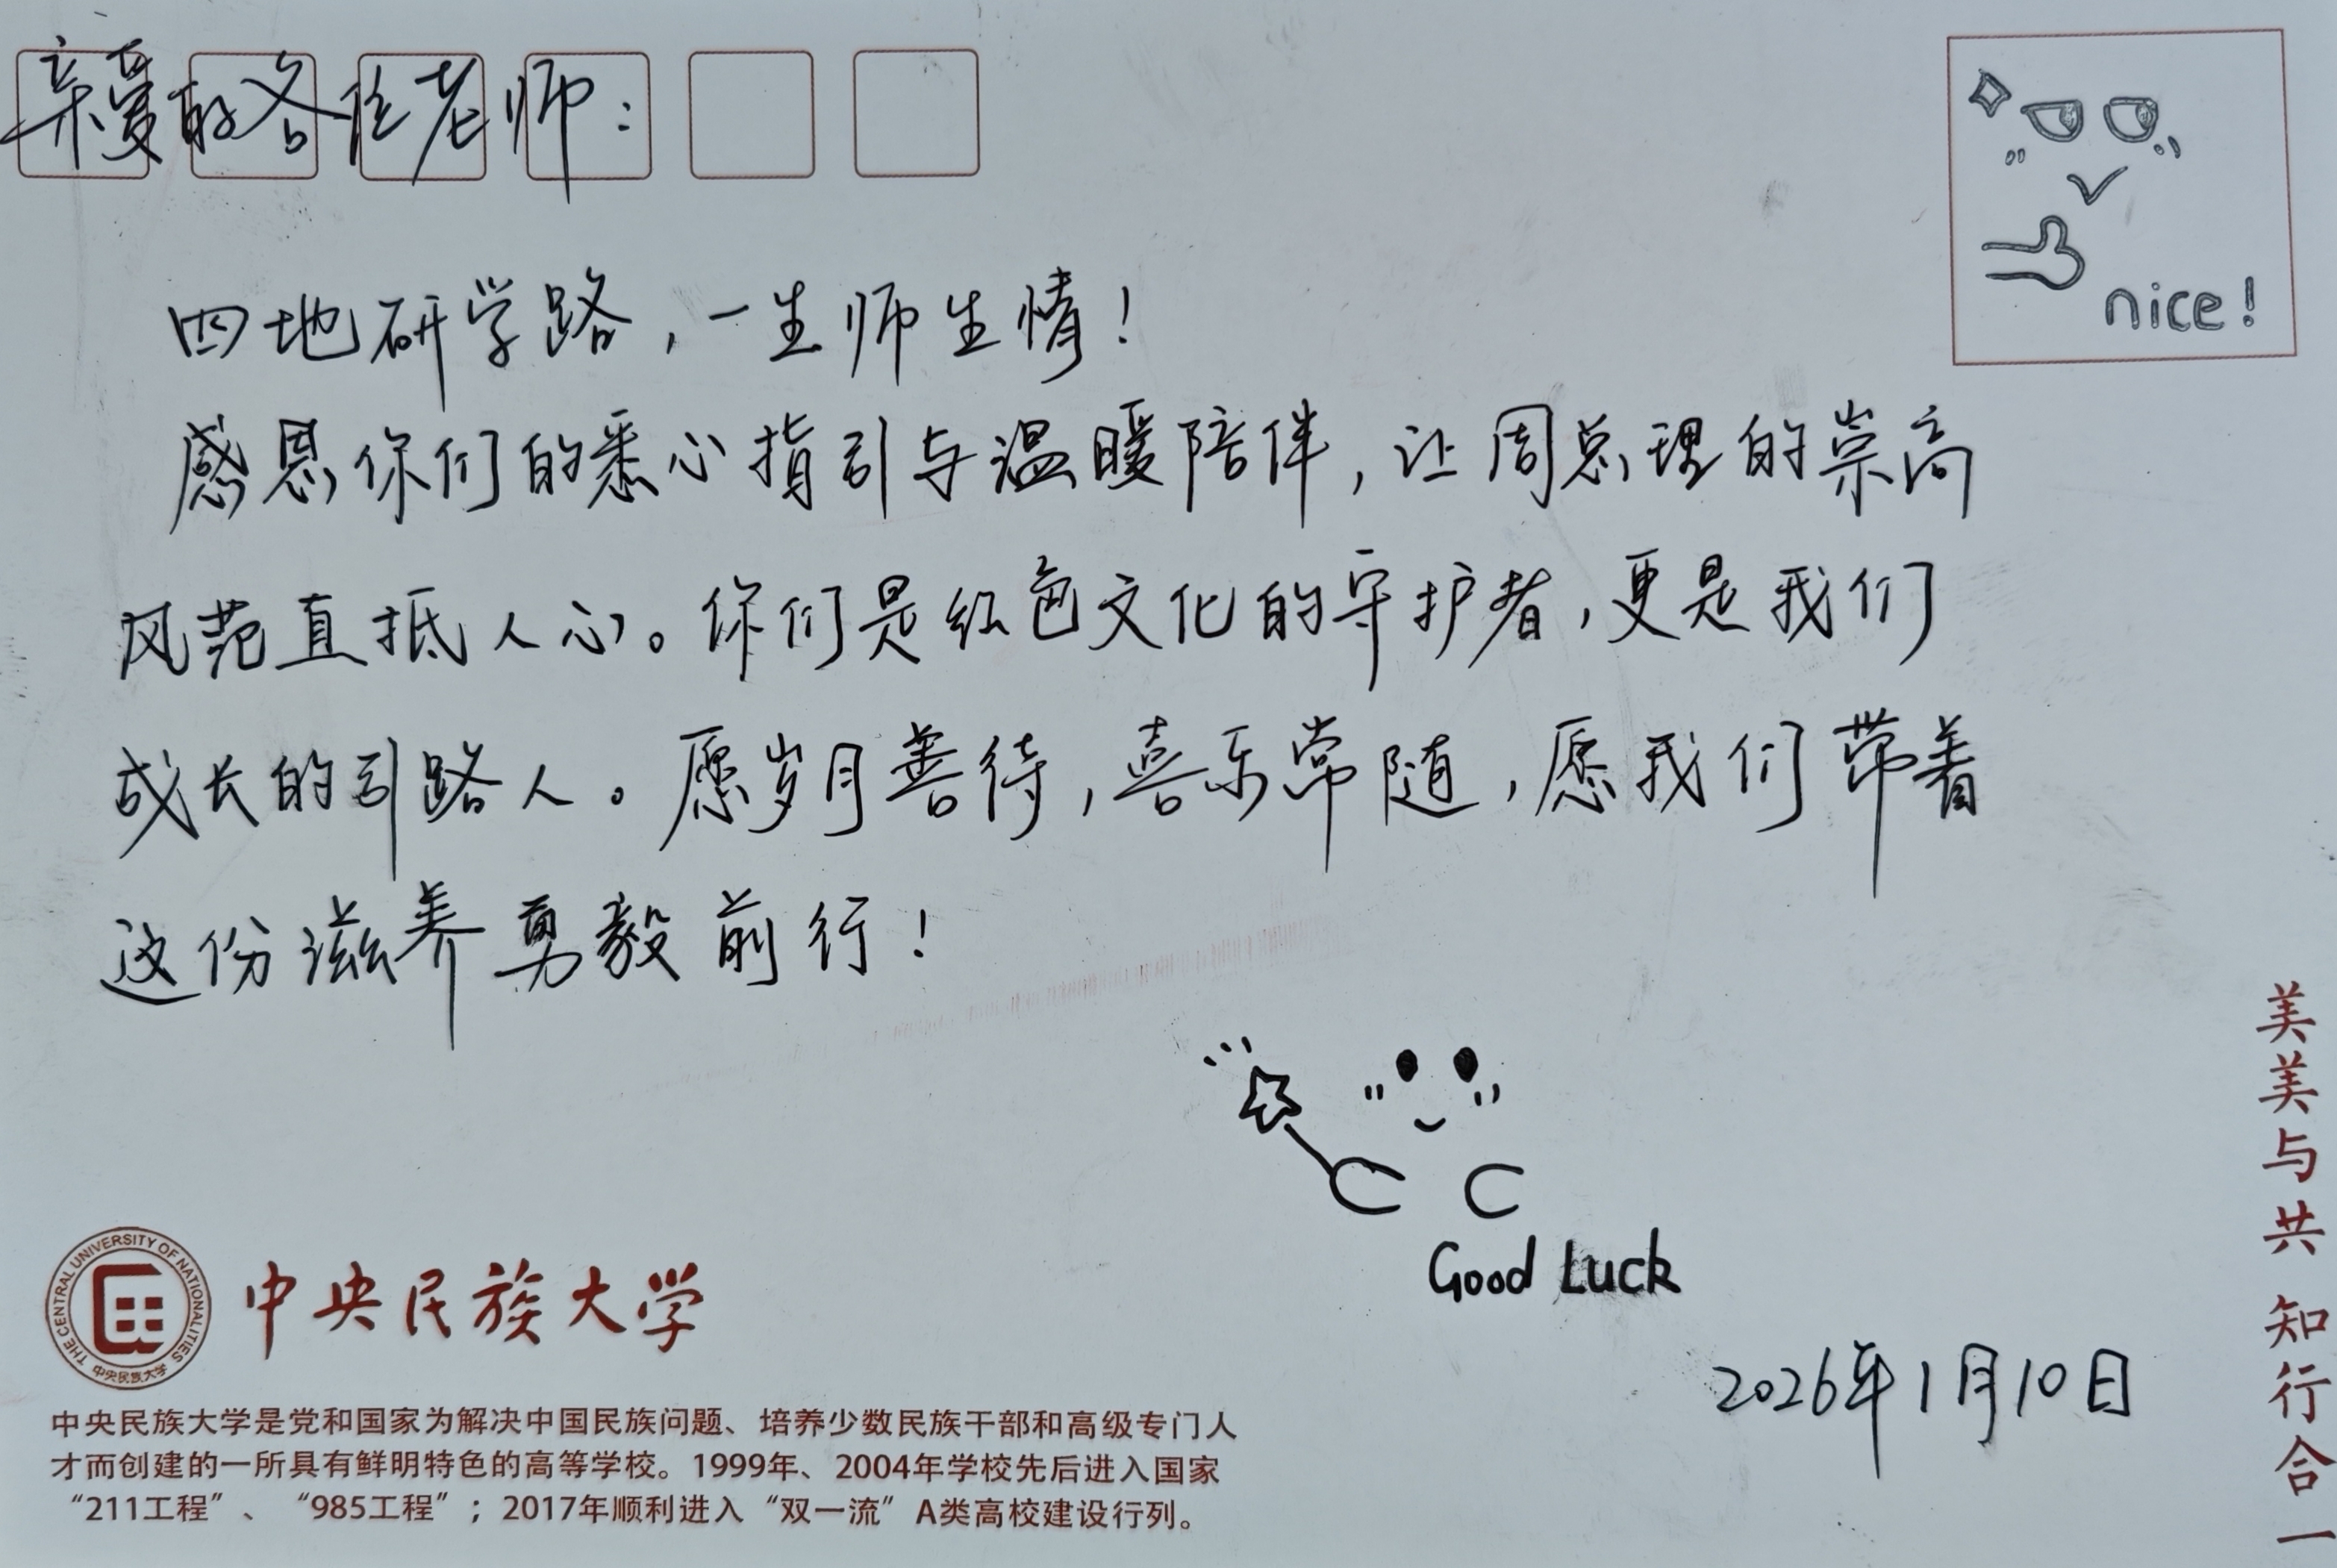 亲爱的各位老师：
nice!
四地研学路，一生师生情！
感恩你们的悉心指引与温暖陪伴，让周总理的崇高
风范直抵人心。你们是红色文化的守护者，更是我们
成长的引路人。愿岁月善待，喜乐常随，愿我们带着
这份滋养勇毅前行！
Good Luck
2026年1月10日
THE CENTRAL UNIVERSITY OF NATIONALITIES
中央民族大学
中央民族大学
中央民族大学是党和国家为解决中国民族问题、培养少数民族干部和高级专门人
才而创建的一所具有鲜明特色的高等学校。1999年、2004年学校先后进入国家
“211工程”、“985工程”；2017年顺利进入“双一流”A类高校建设行列。
美美与共 知行合一